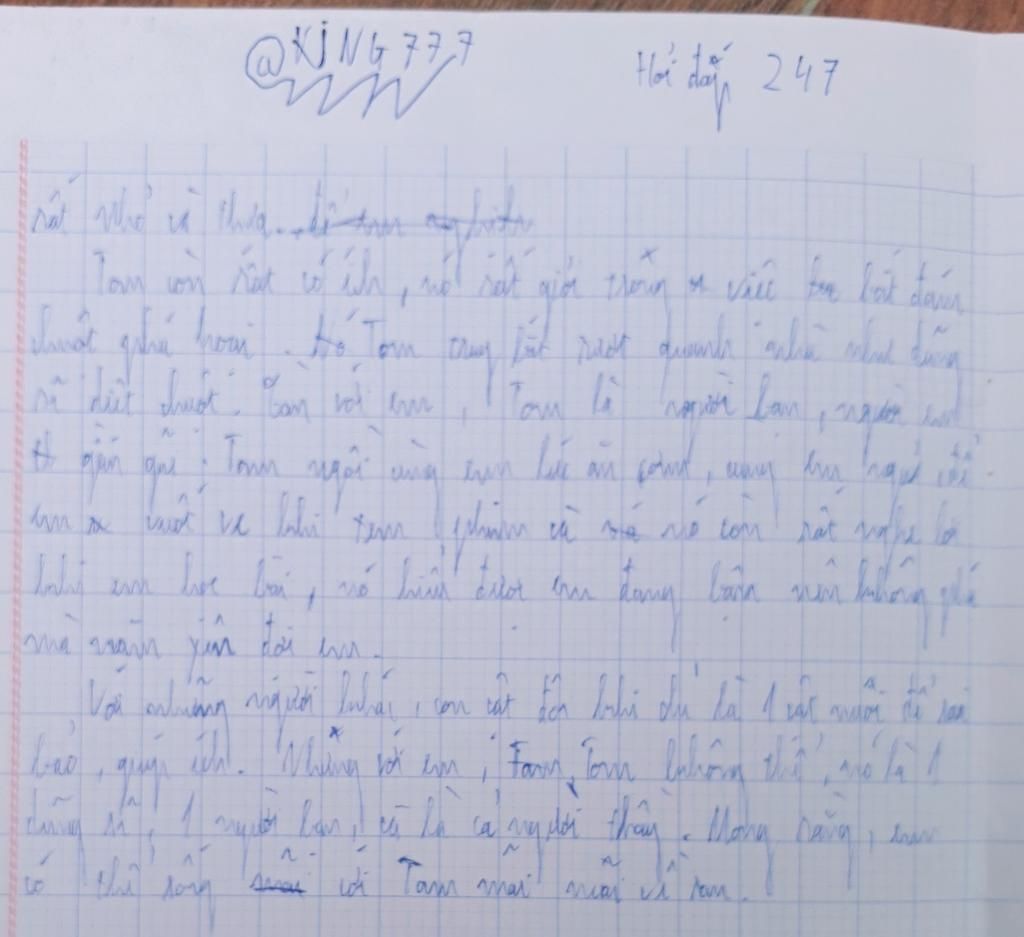 @KING777
Hỏi đáp 247
rất nhỏ và
Tom còn rất có ích, nó rất giỏi trong việc bắt đám
chuột phá hoại. Tom bắt quanh nhà như dũng
sĩ diệt chuột. Còn với em, Tom là người bạn, người em
gần gũi. Tom ngồi cùng em lúc ăn cơm, cùng em ngủ, để
em vuốt ve khi xem phim và nó còn rất nghe lời
khi em học bài, nó hiểu được em đang bận nên không phá
mà nằm yên đợi em.
Với những người khác, con vật đôi khi chỉ là 1 vật nuôi để sai
bảo, giúp ích. Nhưng với em, Tom không thế, nó là 1
dũng sĩ, 1 người bạn, và là cả người thầy. Mong rằng, em
có thể sống với Tom mãi mãi về sau.